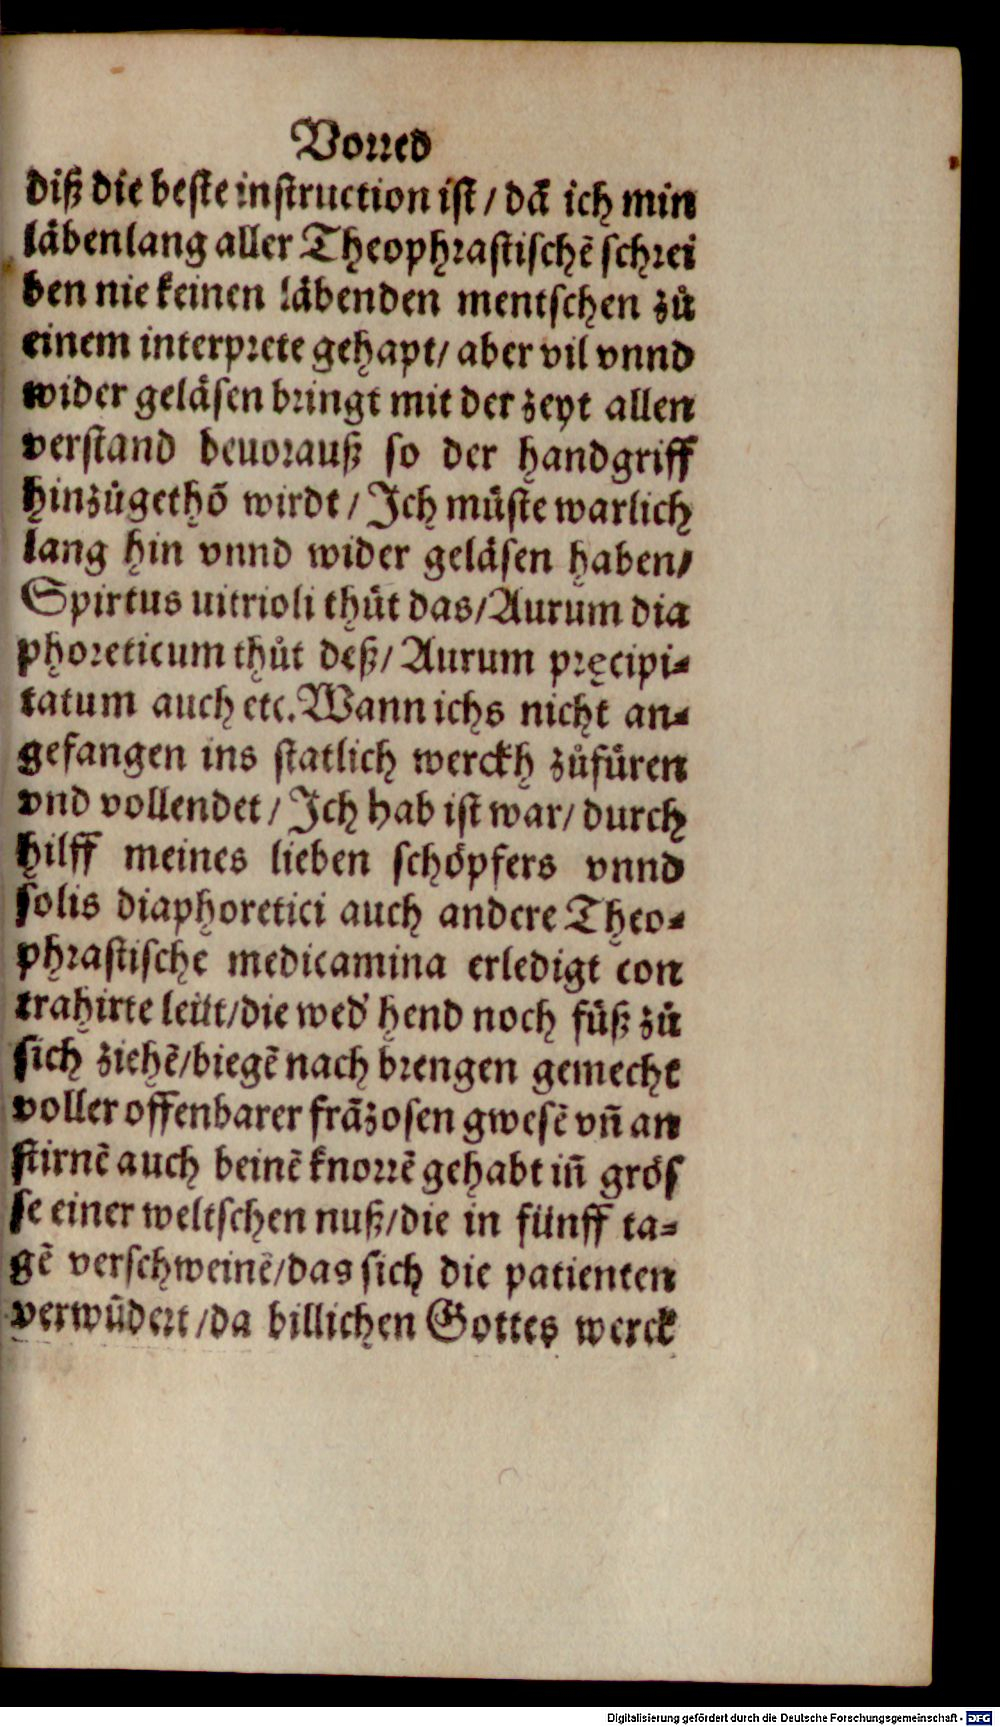 Vorred
diß die beste instruction ist / dā ich min
läbenlang aller Theophrastischē schrei
ben nie keinen läbenden mentschen zů
einem interprete gehapt/ aber vil vnnd
wider geläsen bringt mit der zeyt allen
verstand beuorauß so der handgriff
hinzůgethō wirdt / Ich müste warlich
lang hin vnnd wider geläsen haben/
Spirtus uitrioli thůt das/Aurum dia
phoreticum thůt deß/ Aurum pręcipi-
tatum auch etc. Wann ichs nicht an-
gefangen ins statlich werckh zůfüren
vnd vollendet / Ich hab ist war/ durch
hilff meines lieben schöpfers vnnd
solis diaphoretici auch andere Theo-
phrastische medicamina erledigt con
trahirte leüt/die wed' hend noch füß zů
sich ziehē/biegē nach brengen gemecht
voller offenbarer frāzosen gwesē vñ an
stirnē auch beinē knorrē gehabt iñ grös
se einer weltschen nuß/die in fünff ta-
gē verschweinē/das sich die patienten
verwūdert /da billichen Gottes werck
Digitalisierung gefördert durch die Deutsche Forschungsgemeinschaft - DFG